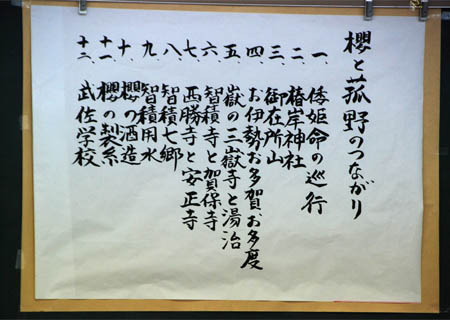 櫻と菰野のつながり
一、倭姫命の巡行
二、椿岸神社
三、御在所山
四、お伊勢お多賀お多度
五、嶽の三嶽寺と湯治
六、智積寺と賀保寺
七、西勝寺と安正寺
八、智積七郷
九、智積用水
十、櫻の酒造
十一、櫻の製糸
十二、武佐学校